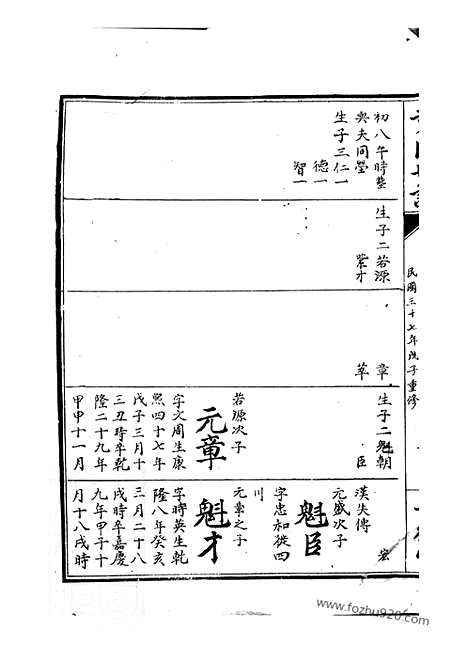 民國三十七年戊子重修
初八午時塟
與夫同塋
生子三仁一
德一
智一
生子二若源
紫才
章
萃
生子二魁朝
臣
若源次子
元章
字文周生康
熙四十七年
戊子三月十
三丑時卒乾
隆二十九年
甲申十一月
漢失傳
宏
元盛次子
魁臣
字忠和從四
川
元章之子
魁才
字時英生乾
隆八年癸亥
三月二十八
戌時卒嘉慶
九年甲子十
月十八戌時
www.fozhu920.com